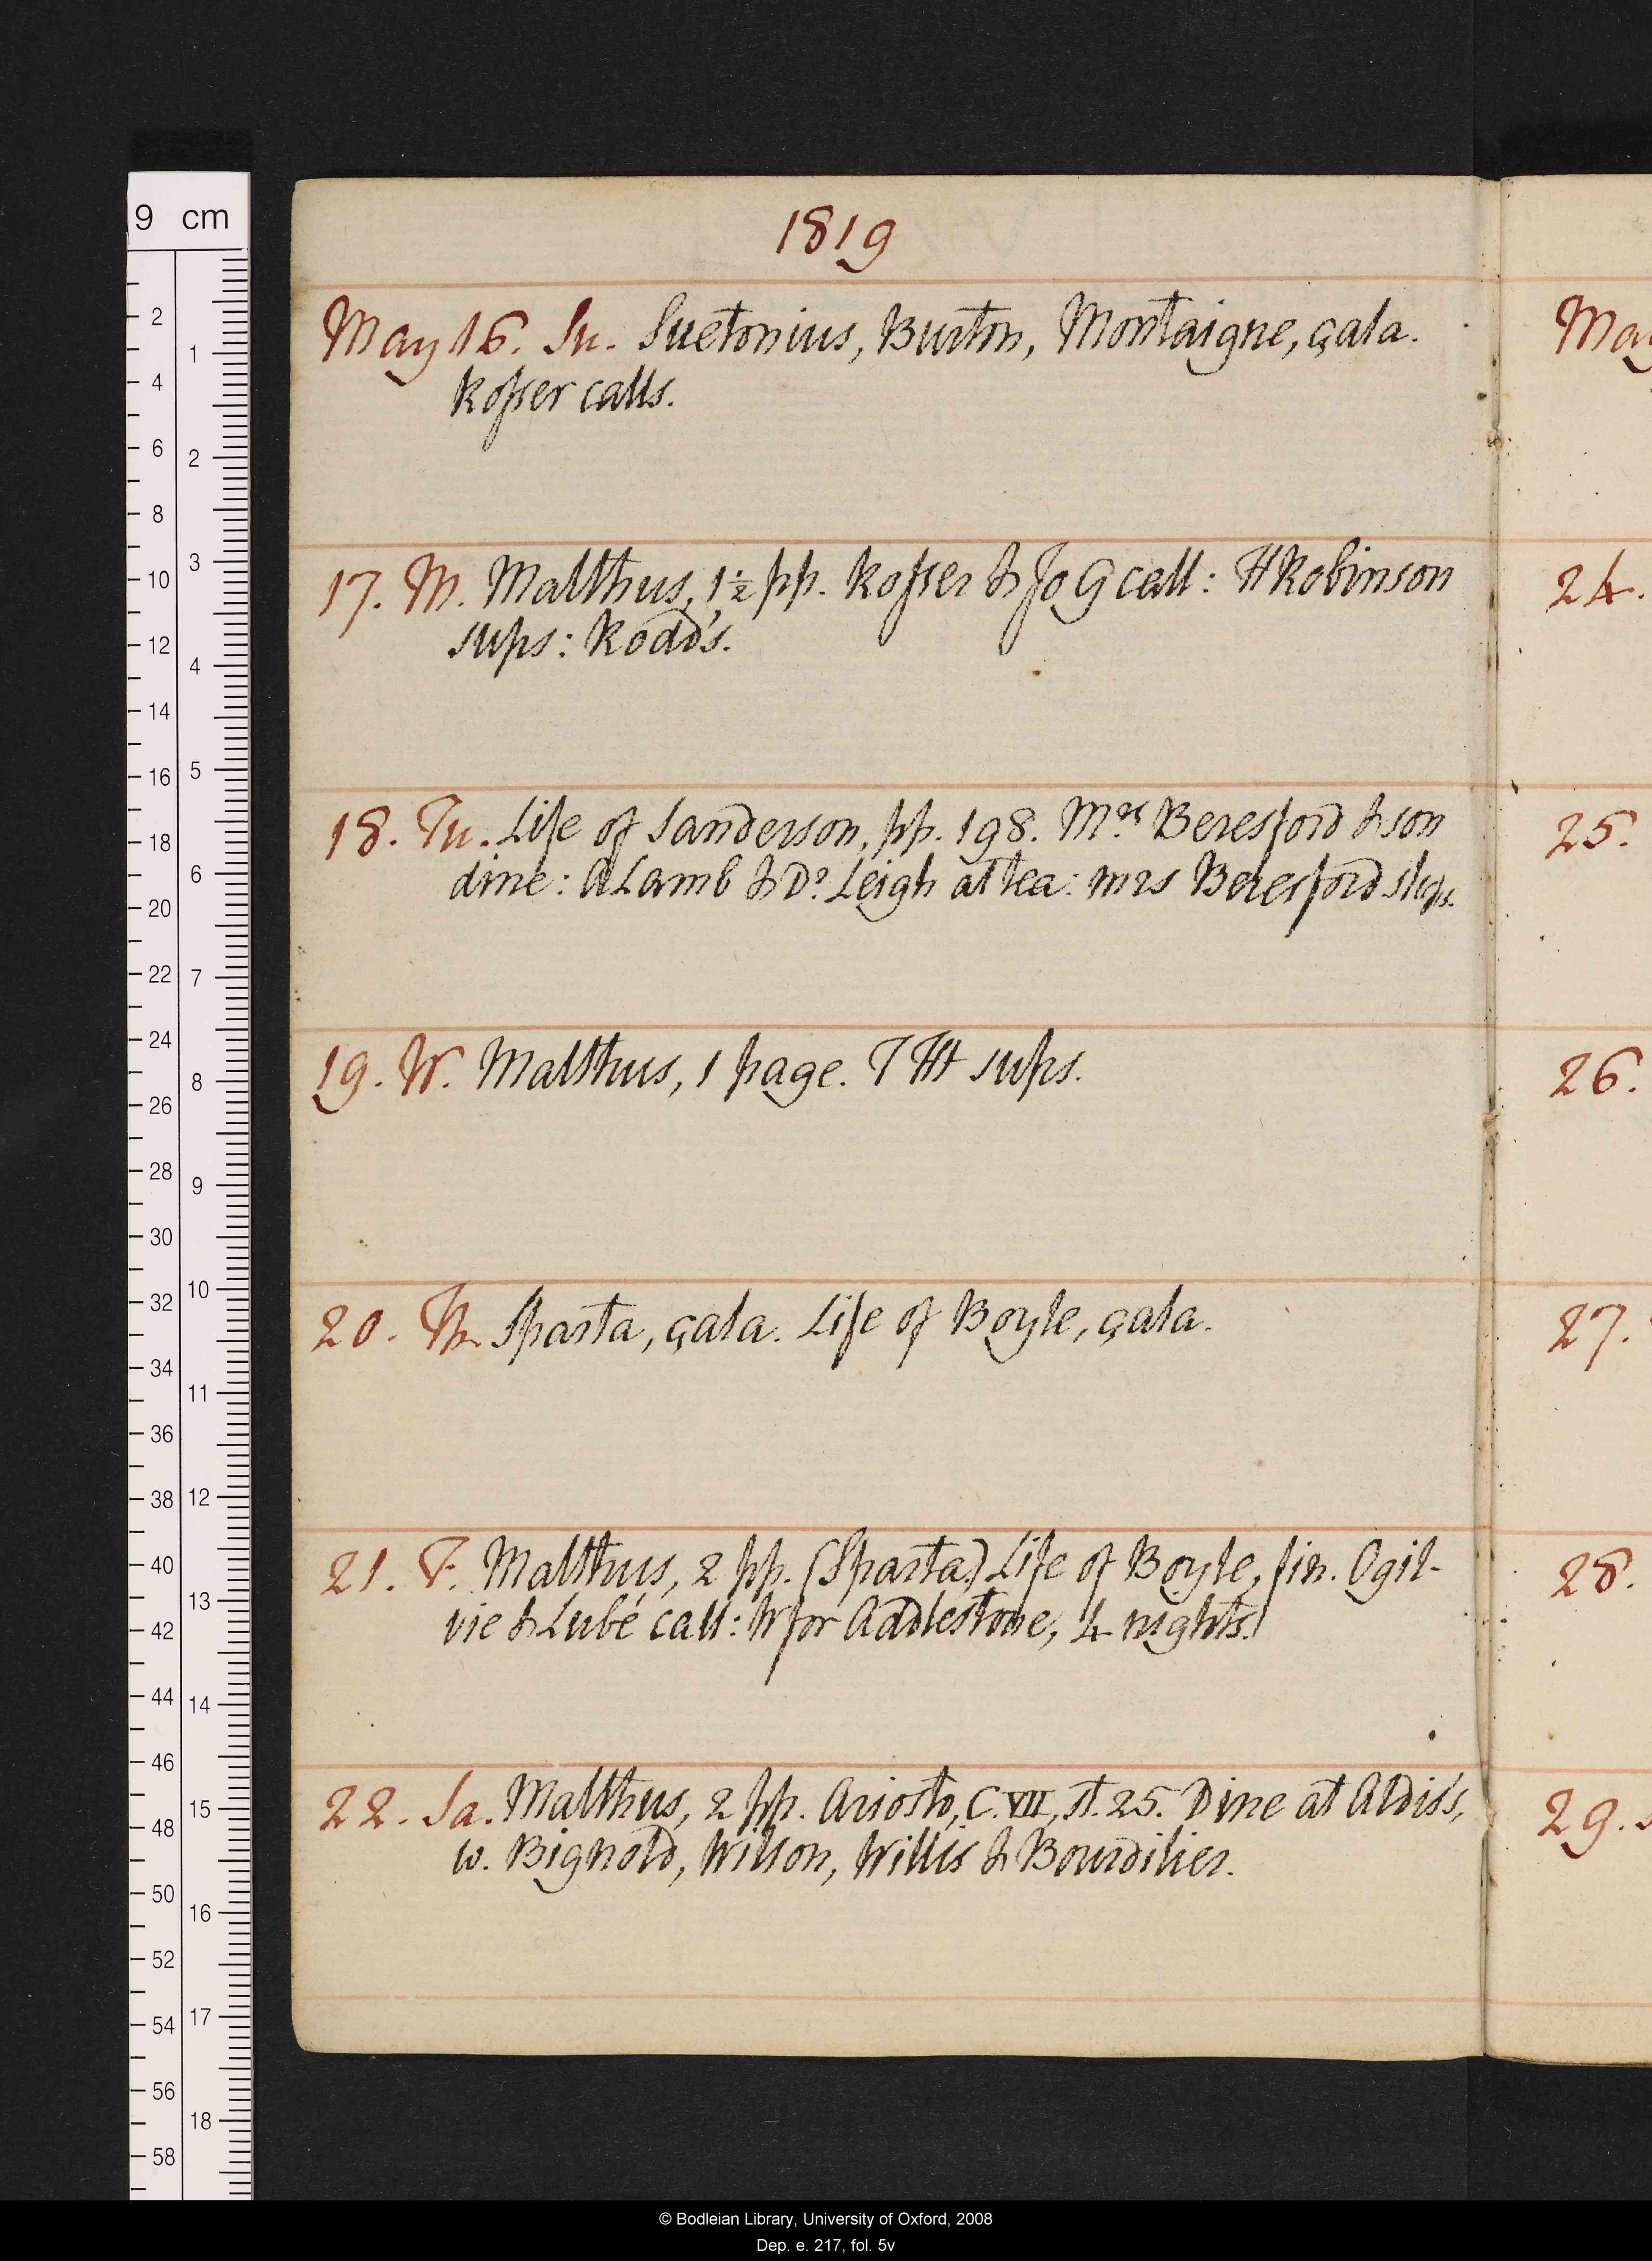 1819
May 16. Su. Suetonius, Burton, Montaigne, çala.
Rosser calls.
17. M. Malthus, 1½ pp. Rosser & Jo G call: H Robinson
sups: Rodd's.
18. Tu. Life of Sanderson, pp. 198. Mrs Beresford & son
dine: A Lamb & Do. Leigh at tea: Mrs Beresford sleeps.
19. W. Malthus, 1 page. T TH sups.
20. Th. Sparta, çala. Life of Boyle, çala.
21. F. Malthus, 2 pp. (Sparta.) Life of Boyle, fin. Ogil-
vie & Lubé call: W for Addlestone, 4 nights.
22. Sa. Malthus, 2 pp. Ariosto, C. VII, st. 25. Dine at Aldis's,
w. Bignold, Wilson, Willis & Bourdilier.
May
24.
25.
26.
27.
28.
29.
9 cm
2
4
6
8
10
12
14
16
18
20
22
24
26
28
30
32
34
36
38
40
42
44
46
48
50
52
54
56
58
1
2
3
4
5
6
7
8
9
10
11
12
13
14
15
16
17
18
© Bodleian Library, University of Oxford, 2008
Dep. e. 217, fol. 5v